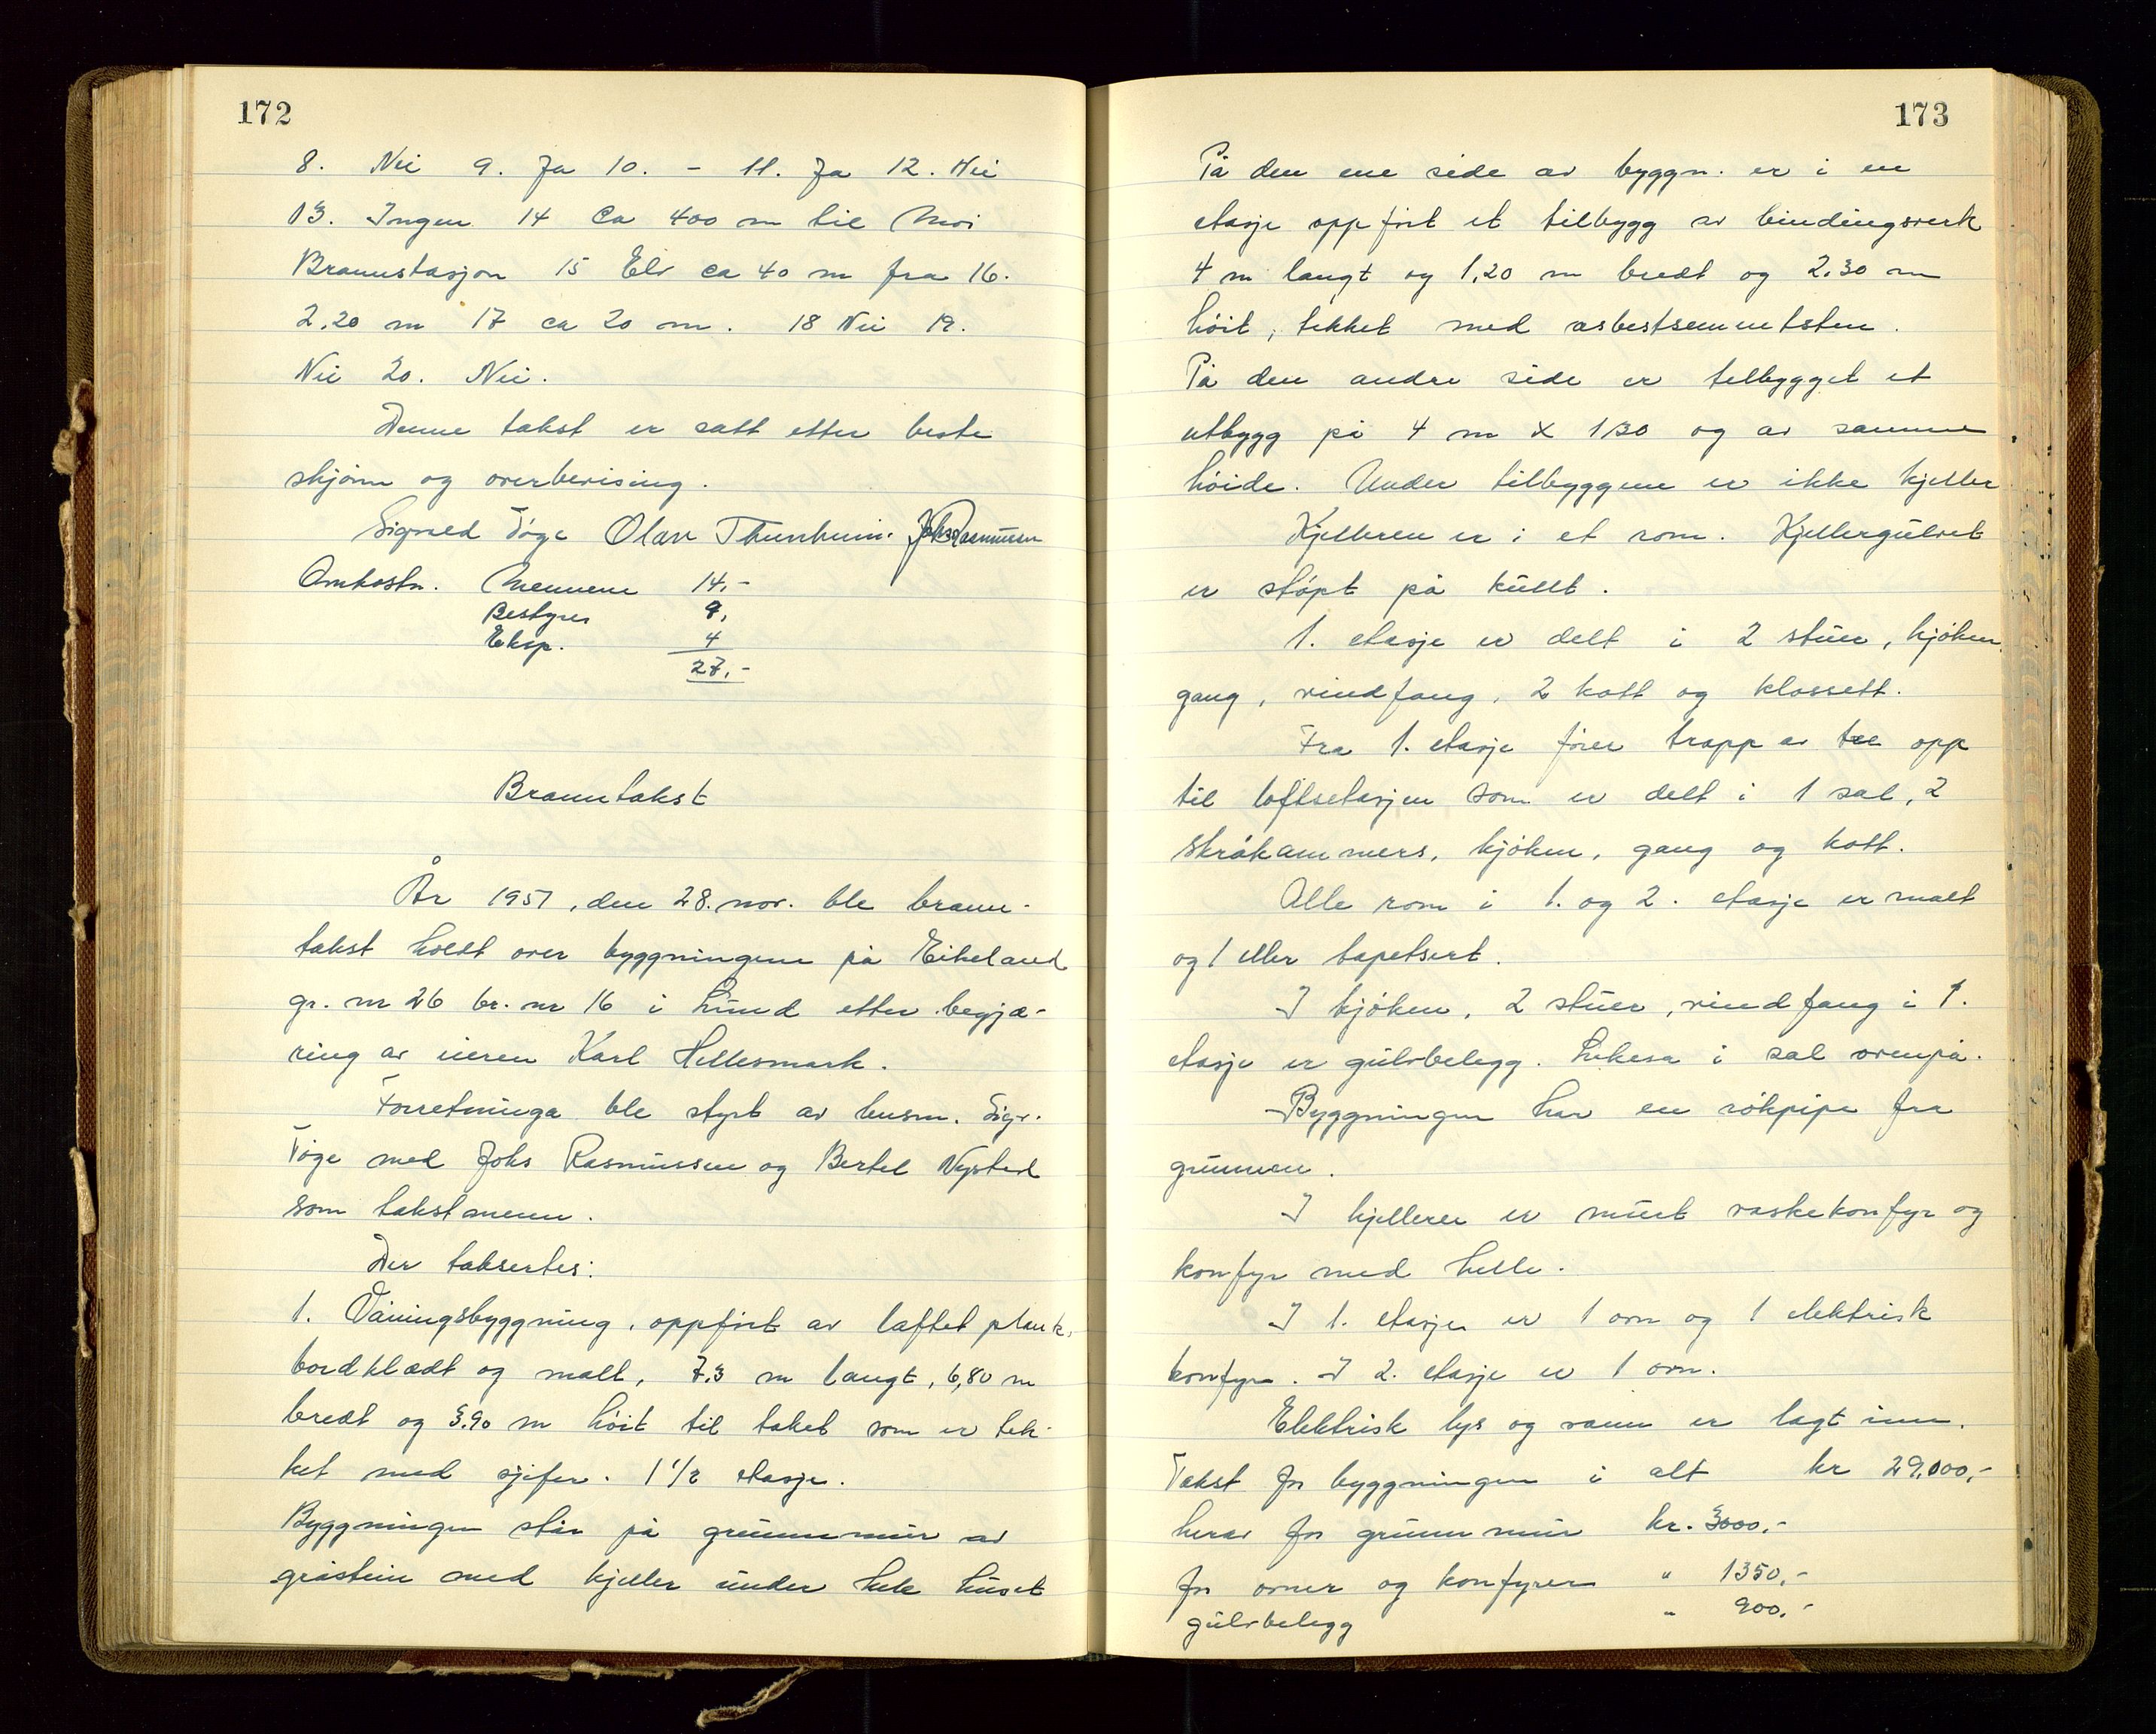 172
8. Nei 9. Ja 10. - 11. Ja 12. Nei
13. Ingen 14 Ca 400 m til Moi
Brannstasjon 15 Elv ca 40 m fra 16.
2.20 m 17 ca 20 m. 18 Nei 19.
Nei 20. Nei.
Denne takst er satt etter beste
skjønn og overbevising.
Sigvald Tøge Olav Thunheim. Johs Rasmussen
Omkostn. Mennene 14,-
Bestyrer 9,
Eksp. 4
27,-
Branntakst
År 1957, den 28. nov. ble brann-
takst holdt over byggningene på Eikeland
gr. nr 26 br. nr 16 i Lund etter begjæ-
ring av eieren Karl Hellesmark.
Forretninga ble styrt av lensm. Sigv.
Tøge med Johs Rasmussen og Bertel Nysted
som takstmenn.
Der taksertes:
1. Våningsbyggning, oppført av laftet plank,
bordklædt og malt, 7.3 m langt, 6,80 m
bredt og 3.90 m høit til taket som er tek-
ket med sjifer. 1 1/2 etasje.
Byggningen står på grunnmur av
gråstein med kjeller under hele huset
173
På den ene side av byggn. er i en
etasje oppført et tilbygg av bindingsverk
4 m langt og 1,20 m bredt og 2.30 m
høit, tekket med asbestsementsten.
På den andre side er tilbygget et
utbygg på 4 m x 1.30 og av samme
høide. Under tilbyggene er ikke kjeller
Kjelleren er i et rom. Kjellergulvet
er støpt på kult.
1. etasje er delt i 2 stuer, kjøken,
gang, vindfang, 2 kott og klossett.
Fra 1. etasje fører trapp av tre opp
til loftsetasjen som er delt i 1 sal, 2
skråkammers, kjøken, gang og kott.
Alle rom i 1. og 2. etasje er malt
og / eller tapetsert.
I kjøken, 2 stuer, vindfang i 1.
etasje er gulvbelegg. Likesa i sal ovenpå.
Byggningen har en røkpipe fra
grunnen.
I kjelleren er murt vaskekomfyr og
komfyr med helle.
I 1. etasje er 1 ovn og 1 elektrisk
komfyr. I 2. etasje er 1 ovn.
Elektrisk lys og vann er lagt inn.
Takst for byggningen i alt kr 29.000,-
herav for grunnmur kr. 3000,-
for ovner og komfyrer " 1350,-
gulvbelegg " 900,-